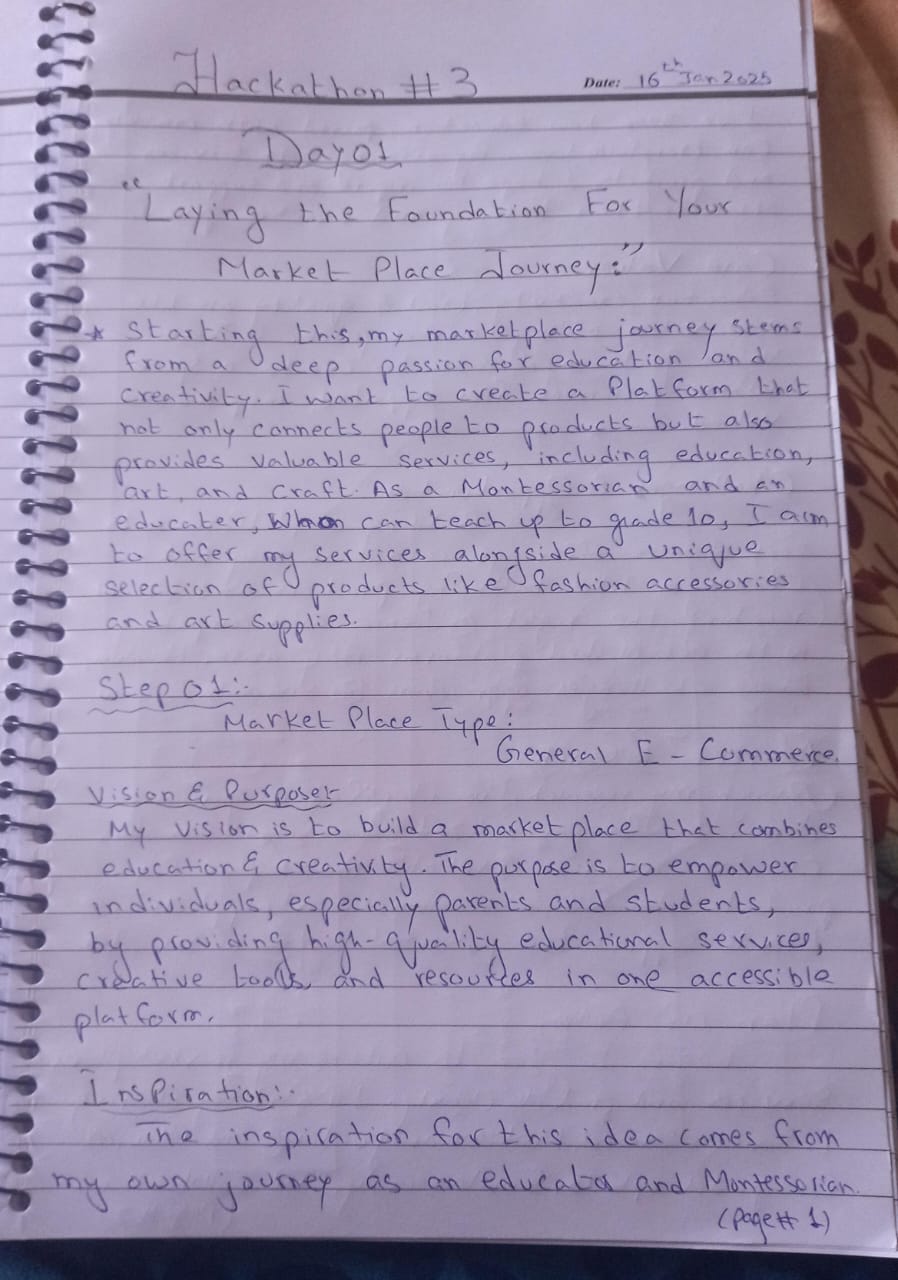 Hackathon # 3
Date: 16th Jan 2025
Day 01
"Laying the Foundation For Your
Market Place Journey:"
* Starting this, my marketplace journey stems
from a deep passion for education and
creativity. I want to create a Platform that
not only connects people to products but also
provides valuable services, including education,
art, and craft. As a Montessorian and an
educater, Whon can teach up to grade 10, I aim
to offer my services alongside a unique
selection of products like fashion accessories
and art supplies.
Step 01:-
Market Place Type:
General E - Commerce.
Vision & Purpose:-
My vision is to build a market place that combines
education & creativity. The purpose is to empower
individuals, especially parents and students,
by providing high-quality educational services,
creative tools, and resources in one accessible
platform.
Inspiration:-
The inspiration for this idea comes from
my own journey as an educator and Montessorian.
(page# 1)